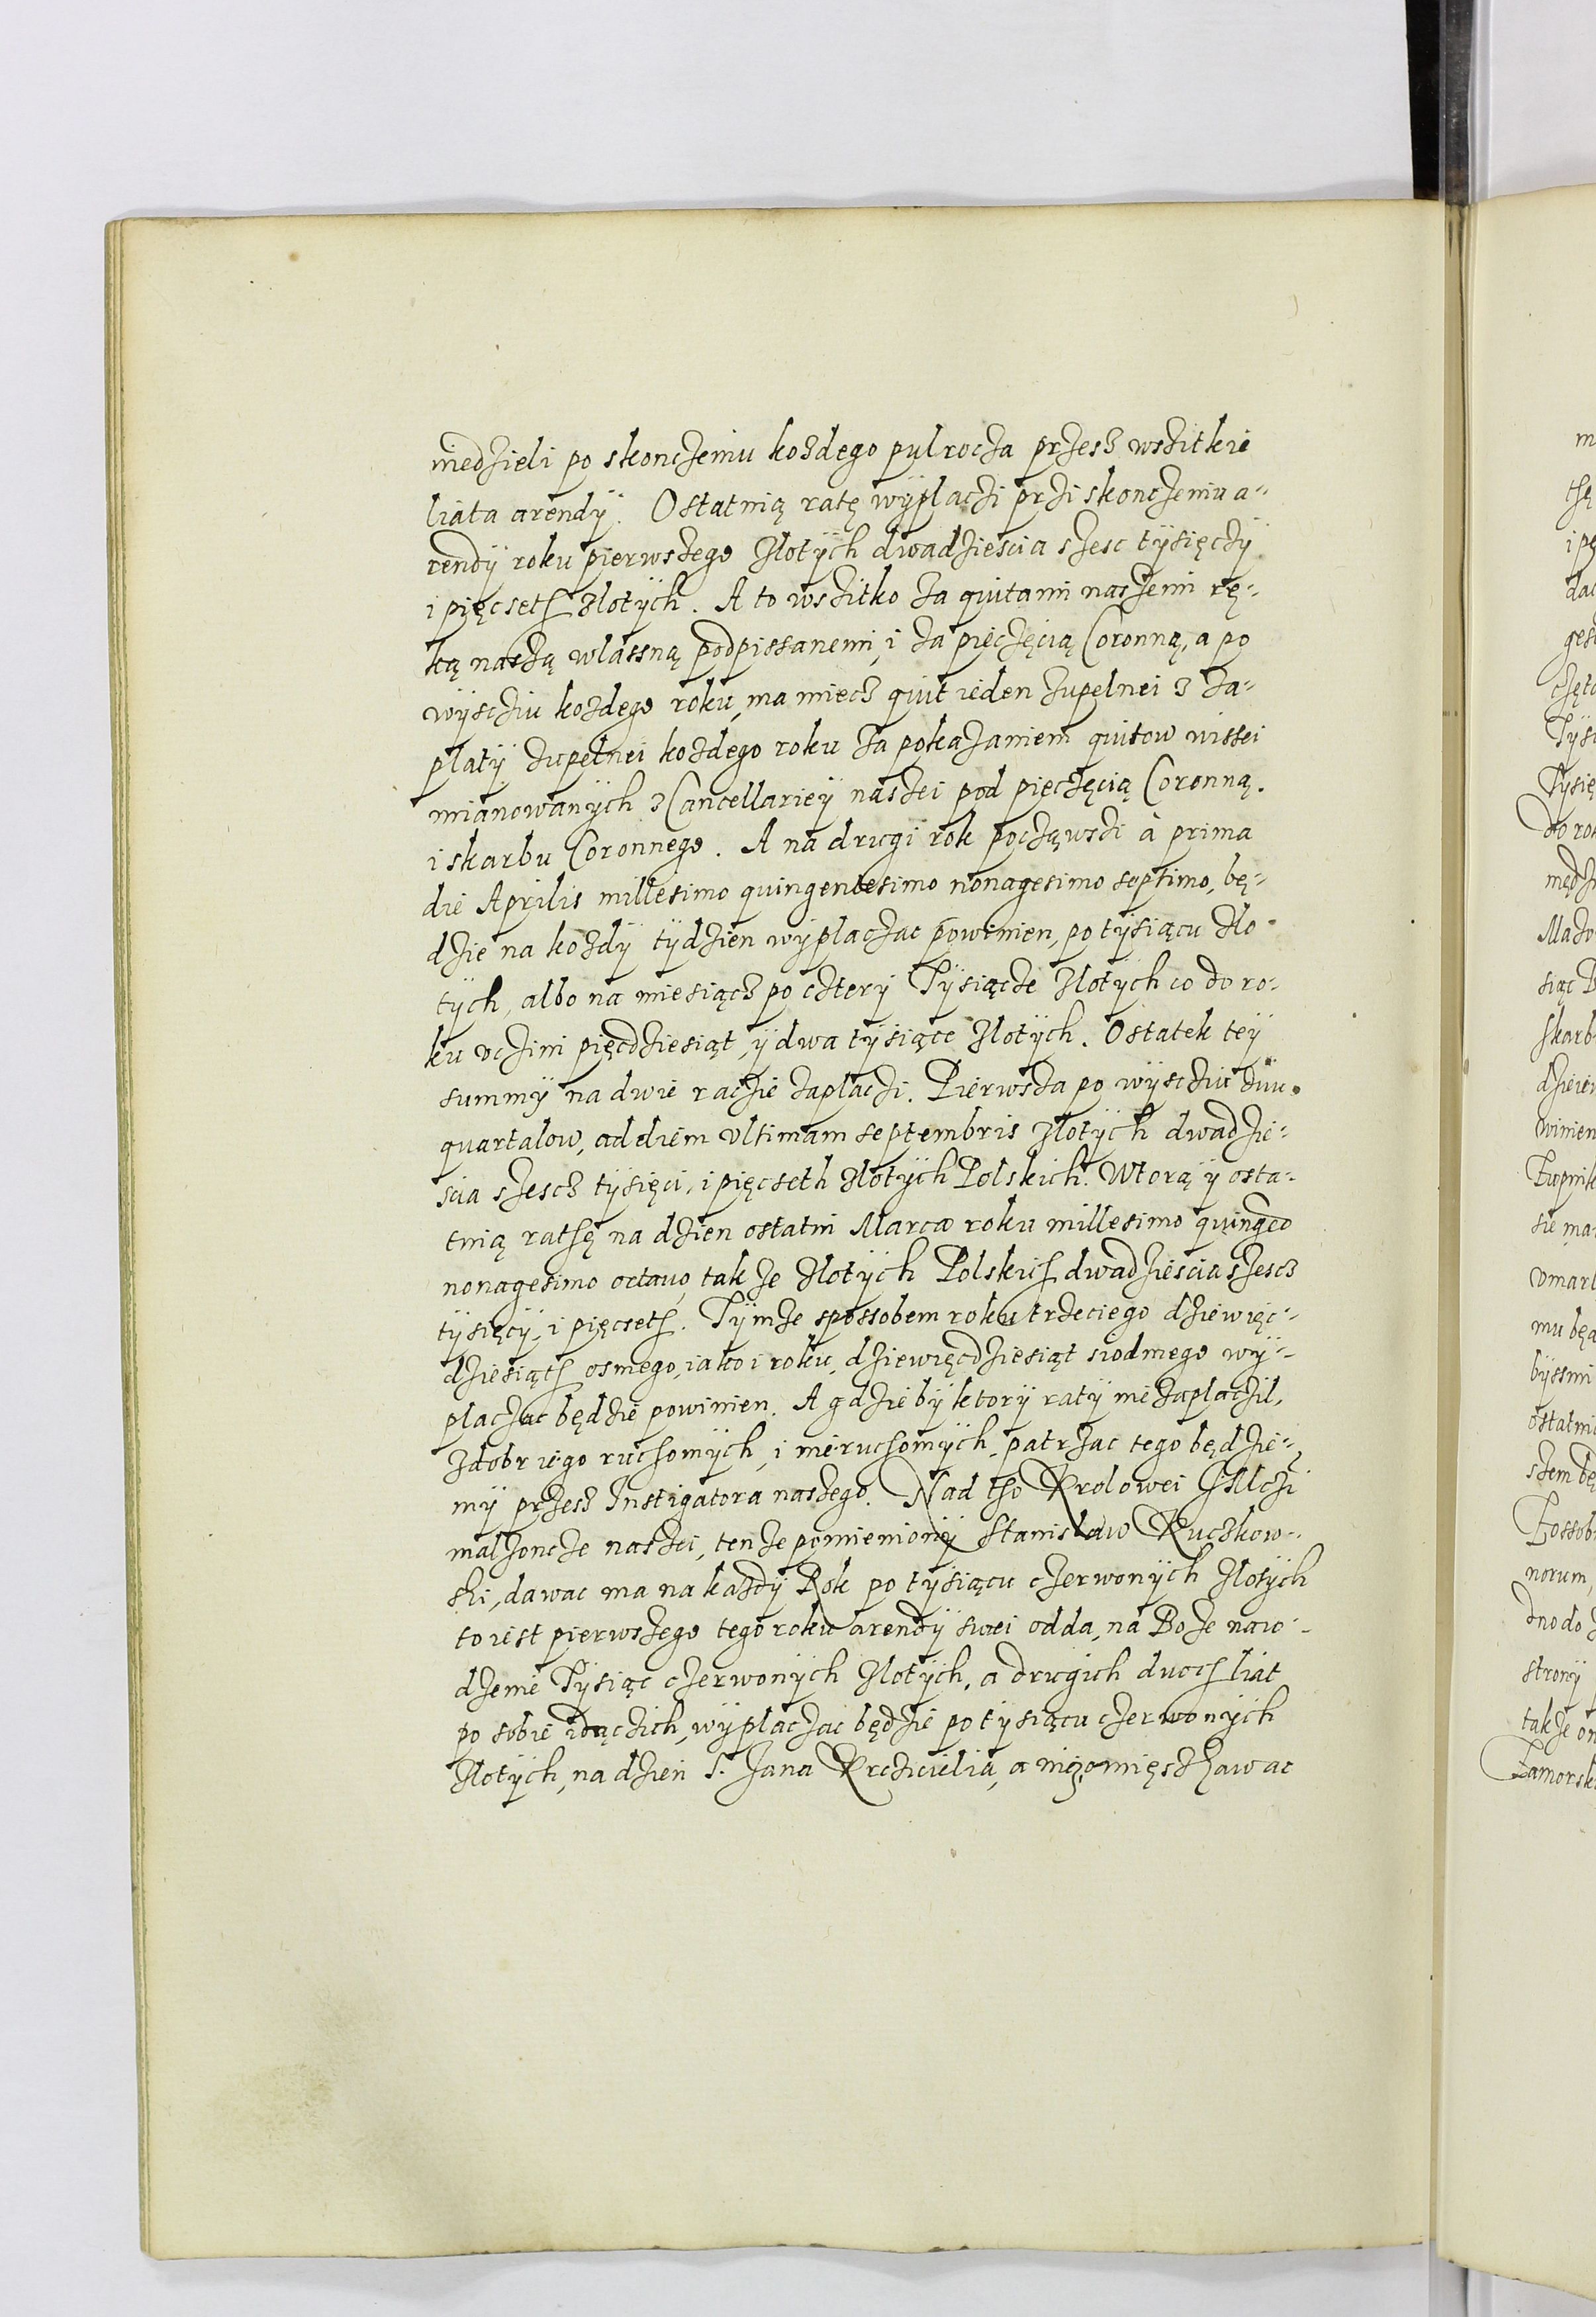 niedzieli po skonczeniu kozdego pulrocza przesz wszitkie
liata arendÿ. Ostatnią ratę wÿplaczi przi skonczeniu a-
rendÿ roku pierwszego zlotÿch dwadziescia szesc tÿsięczÿ
i pięcseth zlotÿch. A to wszitko za quitami naszemi rę-
ką naszą wlassną podpissanemi, i za pięczęcią Coronną, a po
wÿscziu kozdego roku, ma miecz quit ieden zupelnei z za-
platÿ zupelnei kozdego roku za pokazaniem quitow wissei
mianowanÿch z Cancellarieÿ naszei pod pięczęcią Coronną.
i skarbu Coronnego. A na drugi rok począwszi à prima
die Aprilis millesimo quingentesimo nonagesimo septimo, bę-
dzie na kozdÿ tÿdzien wÿplaczac powinien, po tÿsiącu zlo-
tÿch, albo na miesiącz po czterÿ Tÿsiącze zlotÿch co do ro-
ku vczini pięcdziesiąt, ÿ dwa tÿsiące zlotÿch. Ostatek teÿ
summÿ na dwie raczie zaplaczi. Pierwsza po wÿscziu dwu
quartalow, ad diem vltimam septembris zlotÿch dwadzie-
scia szescz tÿsięci, i pięcseth zlotÿch Polskich. Wtorą ÿ osta-
tnią rathę na dzien ostatni Marca roku millesimo quingeo
nonagesimo octauo, takze zlotÿch Polskich dwadziescia szescz
tÿsięcÿ, i pięcseth. Tÿmze spossobem roku trzeciego dziewięc-
dziesiąth osmego, iako i roku, dziewięcdziesiąt siodmego wÿ-
placzac będzie powinien. A gdziebÿ ktorÿ ratÿ nie zaplaczil,
z dobr iego ruchomÿch, i nieruchomÿch, patrzac tego będzie-
mÿ przesz Instigatora naszego. Nad tho Krolowei
malzoncze naszei, tenze pomienionÿ Stanislaw Ruczkow-
ski, dawac ma na kazdÿ Rok po tÿsiącu czerwonÿch zlotÿch
to iest pierwszego tego roku arendÿ swei odda, na Boze naro-
dzenie Tÿsiąc czerwonÿch zlotÿch, a drugich dwoch liat
po sobie idączich, wÿplaczac będzie po tÿsiącu czerwonÿch
zlotÿch, na dzien S. Jana Krzcziciela, a